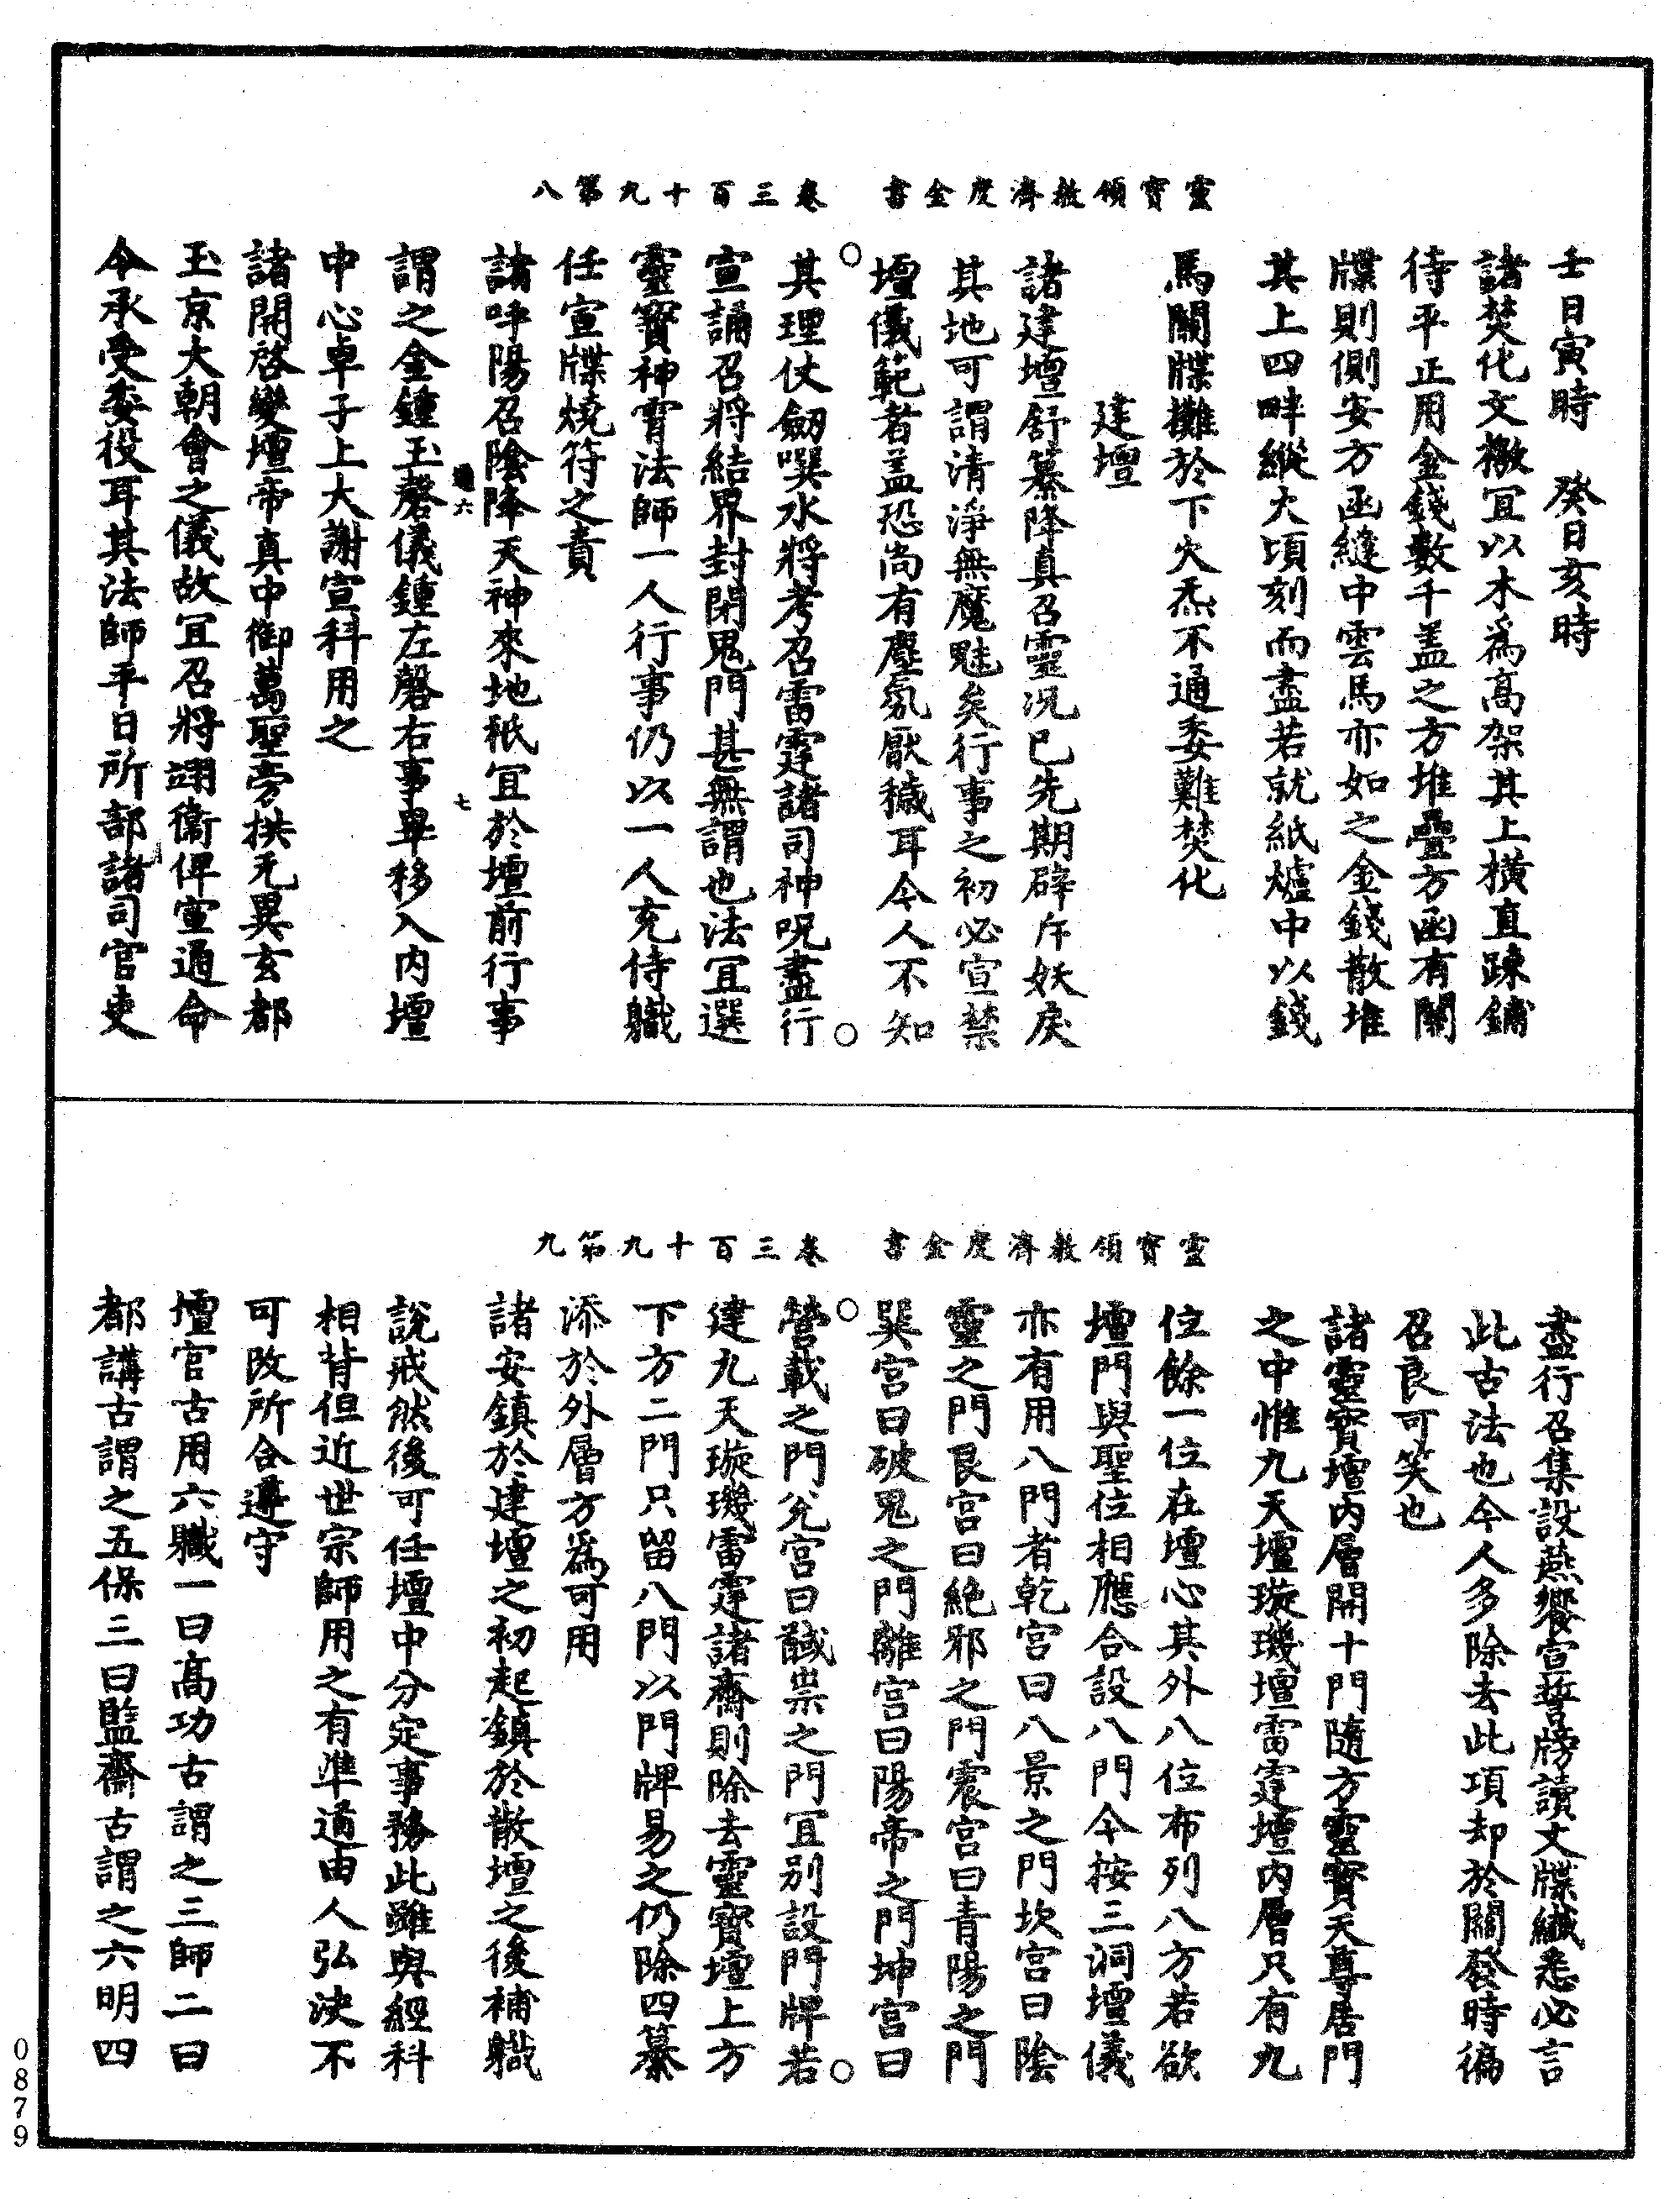 靈寶領教濟度金書　卷三百十九第八
壬日寅時　癸日亥時
諸焚化文檄冝以木爲高架其上橫直踈鋪
待平正用金錢數千盖之方堆疊方函有關
牒則側安方函縫中雲馬亦如之金錢散堆
其上四畔縱火頃刻而盡若就紙爐中以錢
馬關牒攤於下火炁不通委難焚化
建壇
諸建壇舒纂降真召靈况已先期辟斥妖戾
其地可謂清淨無魔魅矣行事之初必宣禁
壇儀範者盖恐尚有塵氛厭穢耳今人不知
其理仗劒噀水將考召雷霆諸司神呪盡行
宣誦召將結界封閉鬼門甚無謂也法冝選
靈寶神霄法師一人行事仍以一人充侍職
任宣牒燒符之責
諸呼陽召陰降天神來地祇冝於壇前行事
通六　七
謂之金鍾玉磬儀鍾左磬右事畢移入内壇
中心卓子上大謝宣科用之
諸開啓變壇帝真中御萬聖旁拱无異玄都
玉京大朝會之儀故冝召將翊衞俾宣通命
令承受委役耳其法師平日所部諸司官吏
靈寶領教濟度金書　卷三百十九第九
盡行召集設燕饗宣誓牓讀文牒纖悉必言
此古法也今人多除去此項却於關發時徧
召良可笑也
諸靈寶壇内層開十門隨方靈寶天尊居門
之中惟九天壇璇璣壇雷霆壇内層只有九
位餘一位在壇心其外八位布列八方若欲
壇門與聖位相應合設八門今按三洞壇儀
亦有用八門者乾宮曰八景之門坎宮曰陰
靈之門艮宮曰絶邪之門震宮曰青陽之門
巽宮曰破鬼之門離宮曰陽帝之門坤宮曰
營載之門兊宮曰馘祟之門冝别設門牌若
建九天璇璣雷霆諸齋則除去靈寶壇上方
下方二門只留八門以門牌易之仍除四纂
添於外層方爲可用
諸安鎮於建壇之初起鎮於散壇之後補職
説戒然後可任壇中分定事務此雖與經科
相背但近世宗師用之有準遹由人弘決不
可改所合遵守
壇官古用六職一曰高功古謂之三師二曰
都講古謂之五保三曰監齋古謂之六明四
0879